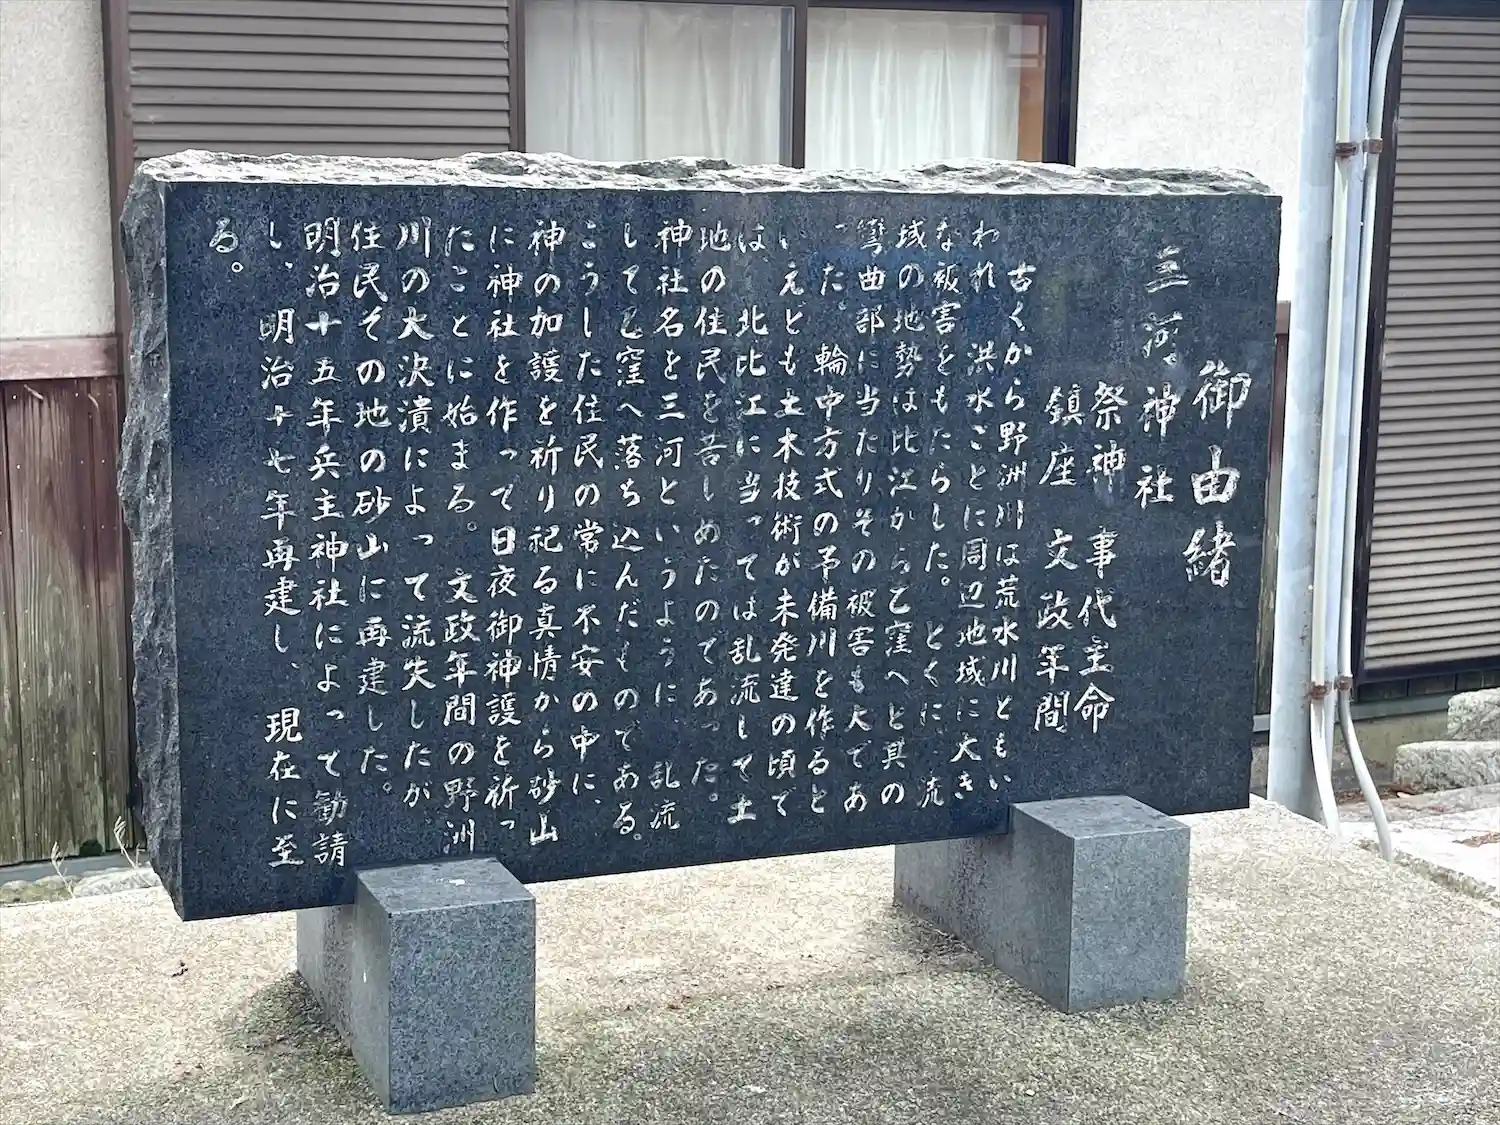 御由緒
三河神社
祭神 事代主命
鎮座 文政年間
古くから野洲川は荒水川ともい
われ、洪水ごとに周辺地域に大き
な被害をもたらした。とくに、流
域の地勢は比江から乙窪へと其の
彎曲部に当たりその被害も大であ
った。輪中方式の予備川を作ると
いえども土木技術が未発達の頃で
は、北比江に当っては乱流して土
地の住民を苦しめたのであった。
神社名を三河というように、乱流
して乙窪へ落ち込んだものである。
こうした住民の常に不安の中に、
神の加護を祈り祀る真情から砂山
に神社を作って日夜御神護を祈っ
たことに始まる。文政年間の野洲
川の大決潰によって流失したが、
住民その地の砂山に再建した。
明治十五年兵主神社によって勧請
し、明治十七年再建し、現在に至
る。